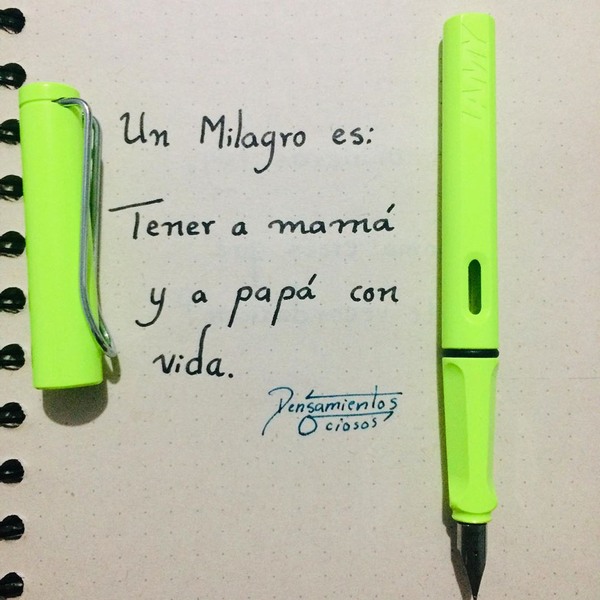 Un Milagro es:
Tener a mamá
y a papá con
vida.
Pensamientos
Ociosos
LAMY